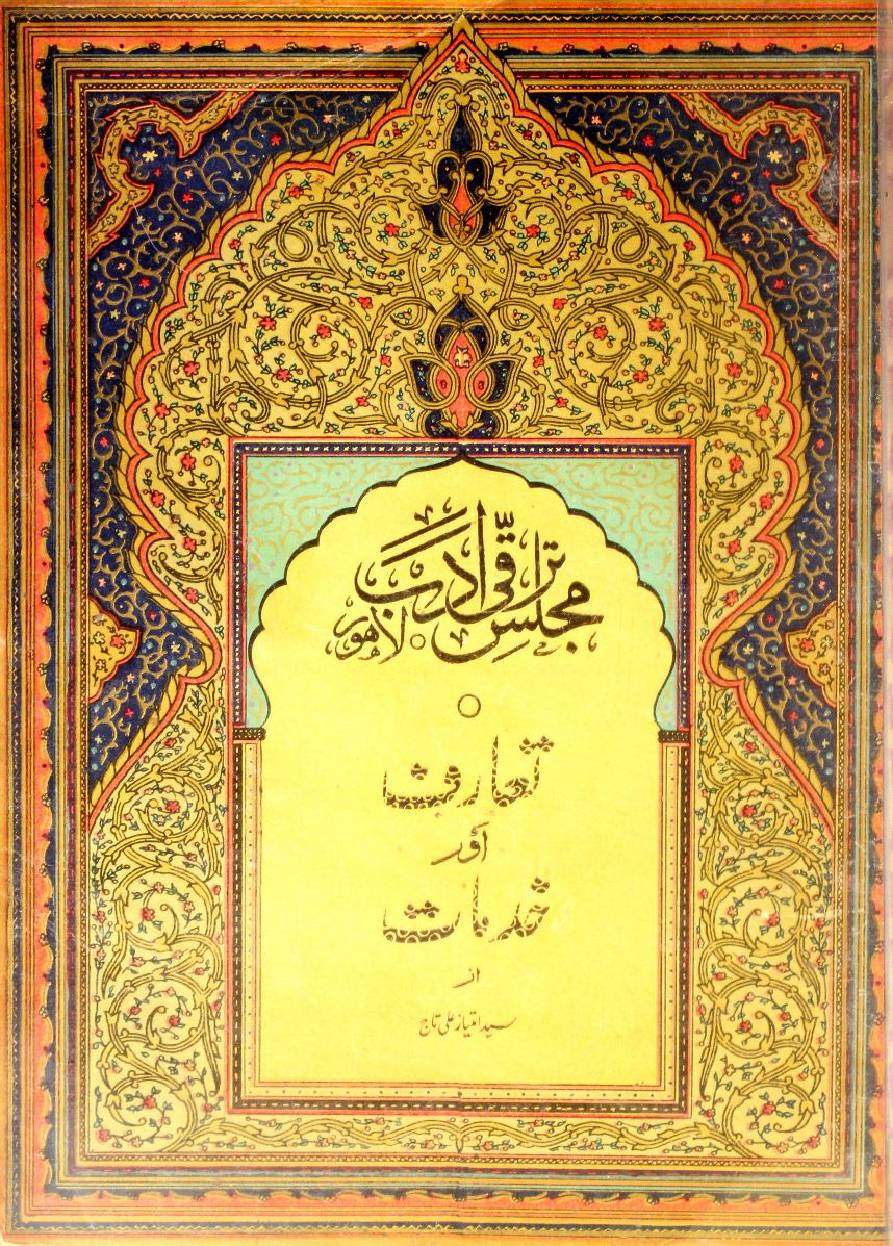 مجلس ترقی ادب
لاہور
تعارف
اور
خدمات
از
سید امتیاز علی تاج